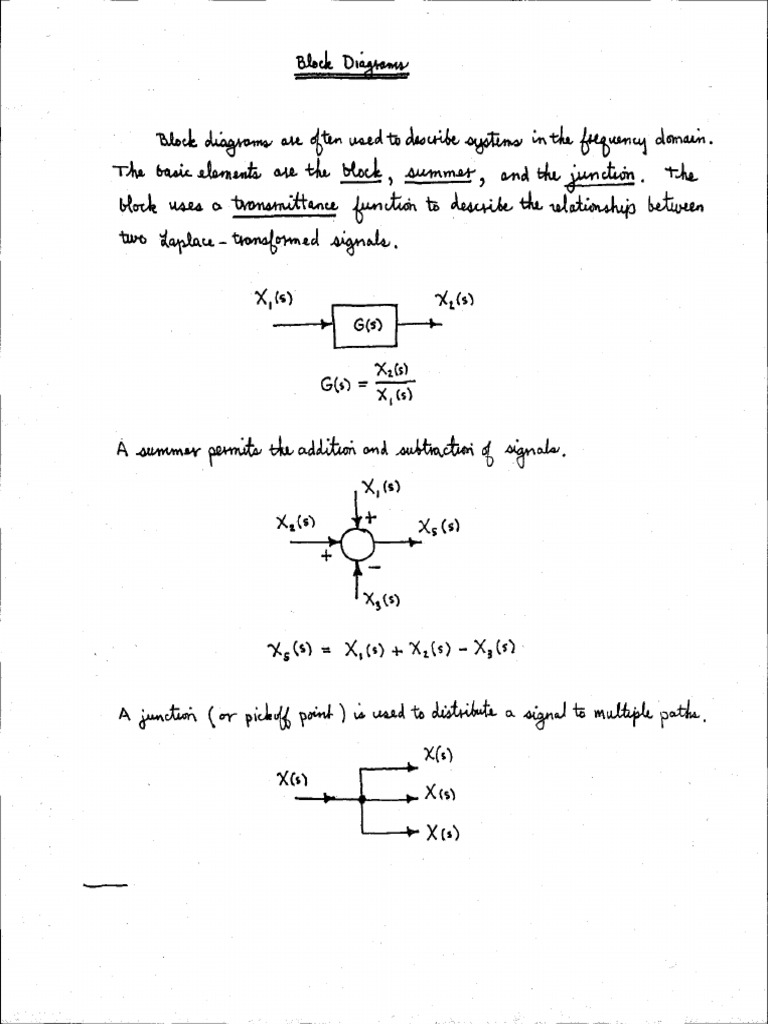 Block Diagrams
Block diagrams are often used to describe systems in the frequency domain.
The basic elements are the block, summer, and the junction. The
block uses a transmittance function to describe the relationship between
two Laplace-transformed signals.
X₁(s) X₂(s)
G(s)
G(s) = X₂(s) / X₁(s)
A summer permits the addition and subtraction of signals.
X₁(s)
+
X₂(s) X₅(s)
+
−
X₃(s)
X₅(s) = X₁(s) + X₂(s) − X₃(s)
A junction (or pickoff point) is used to distribute a signal to multiple paths.
X(s)
X(s)
X(s)
X(s)